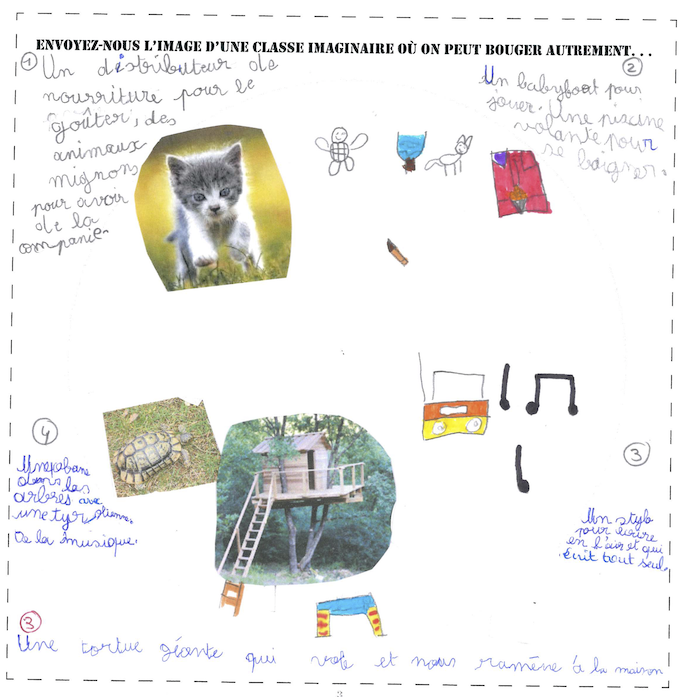 ENVOYEZ-NOUS L'IMAGE D'UNE CLASSE IMAGINAIRE OÙ ON PEUT BOUGER AUTREMENT...
1
Un distributeur de
nourriture pour le
goûter, des
animaux
mignons
pour avoir
de la
companie.
2
Un babyfoot pour
jouer. Une piscine
volante pour
se baigner.
4
Une cabane
dans les
arbres avec
une tyrolienne.
De la musique.
3
Un stylo
pour écrire
en l'air et qui
écrit tout seul.
3
Une tortue géante qui vole et nous ramène à la maison
3